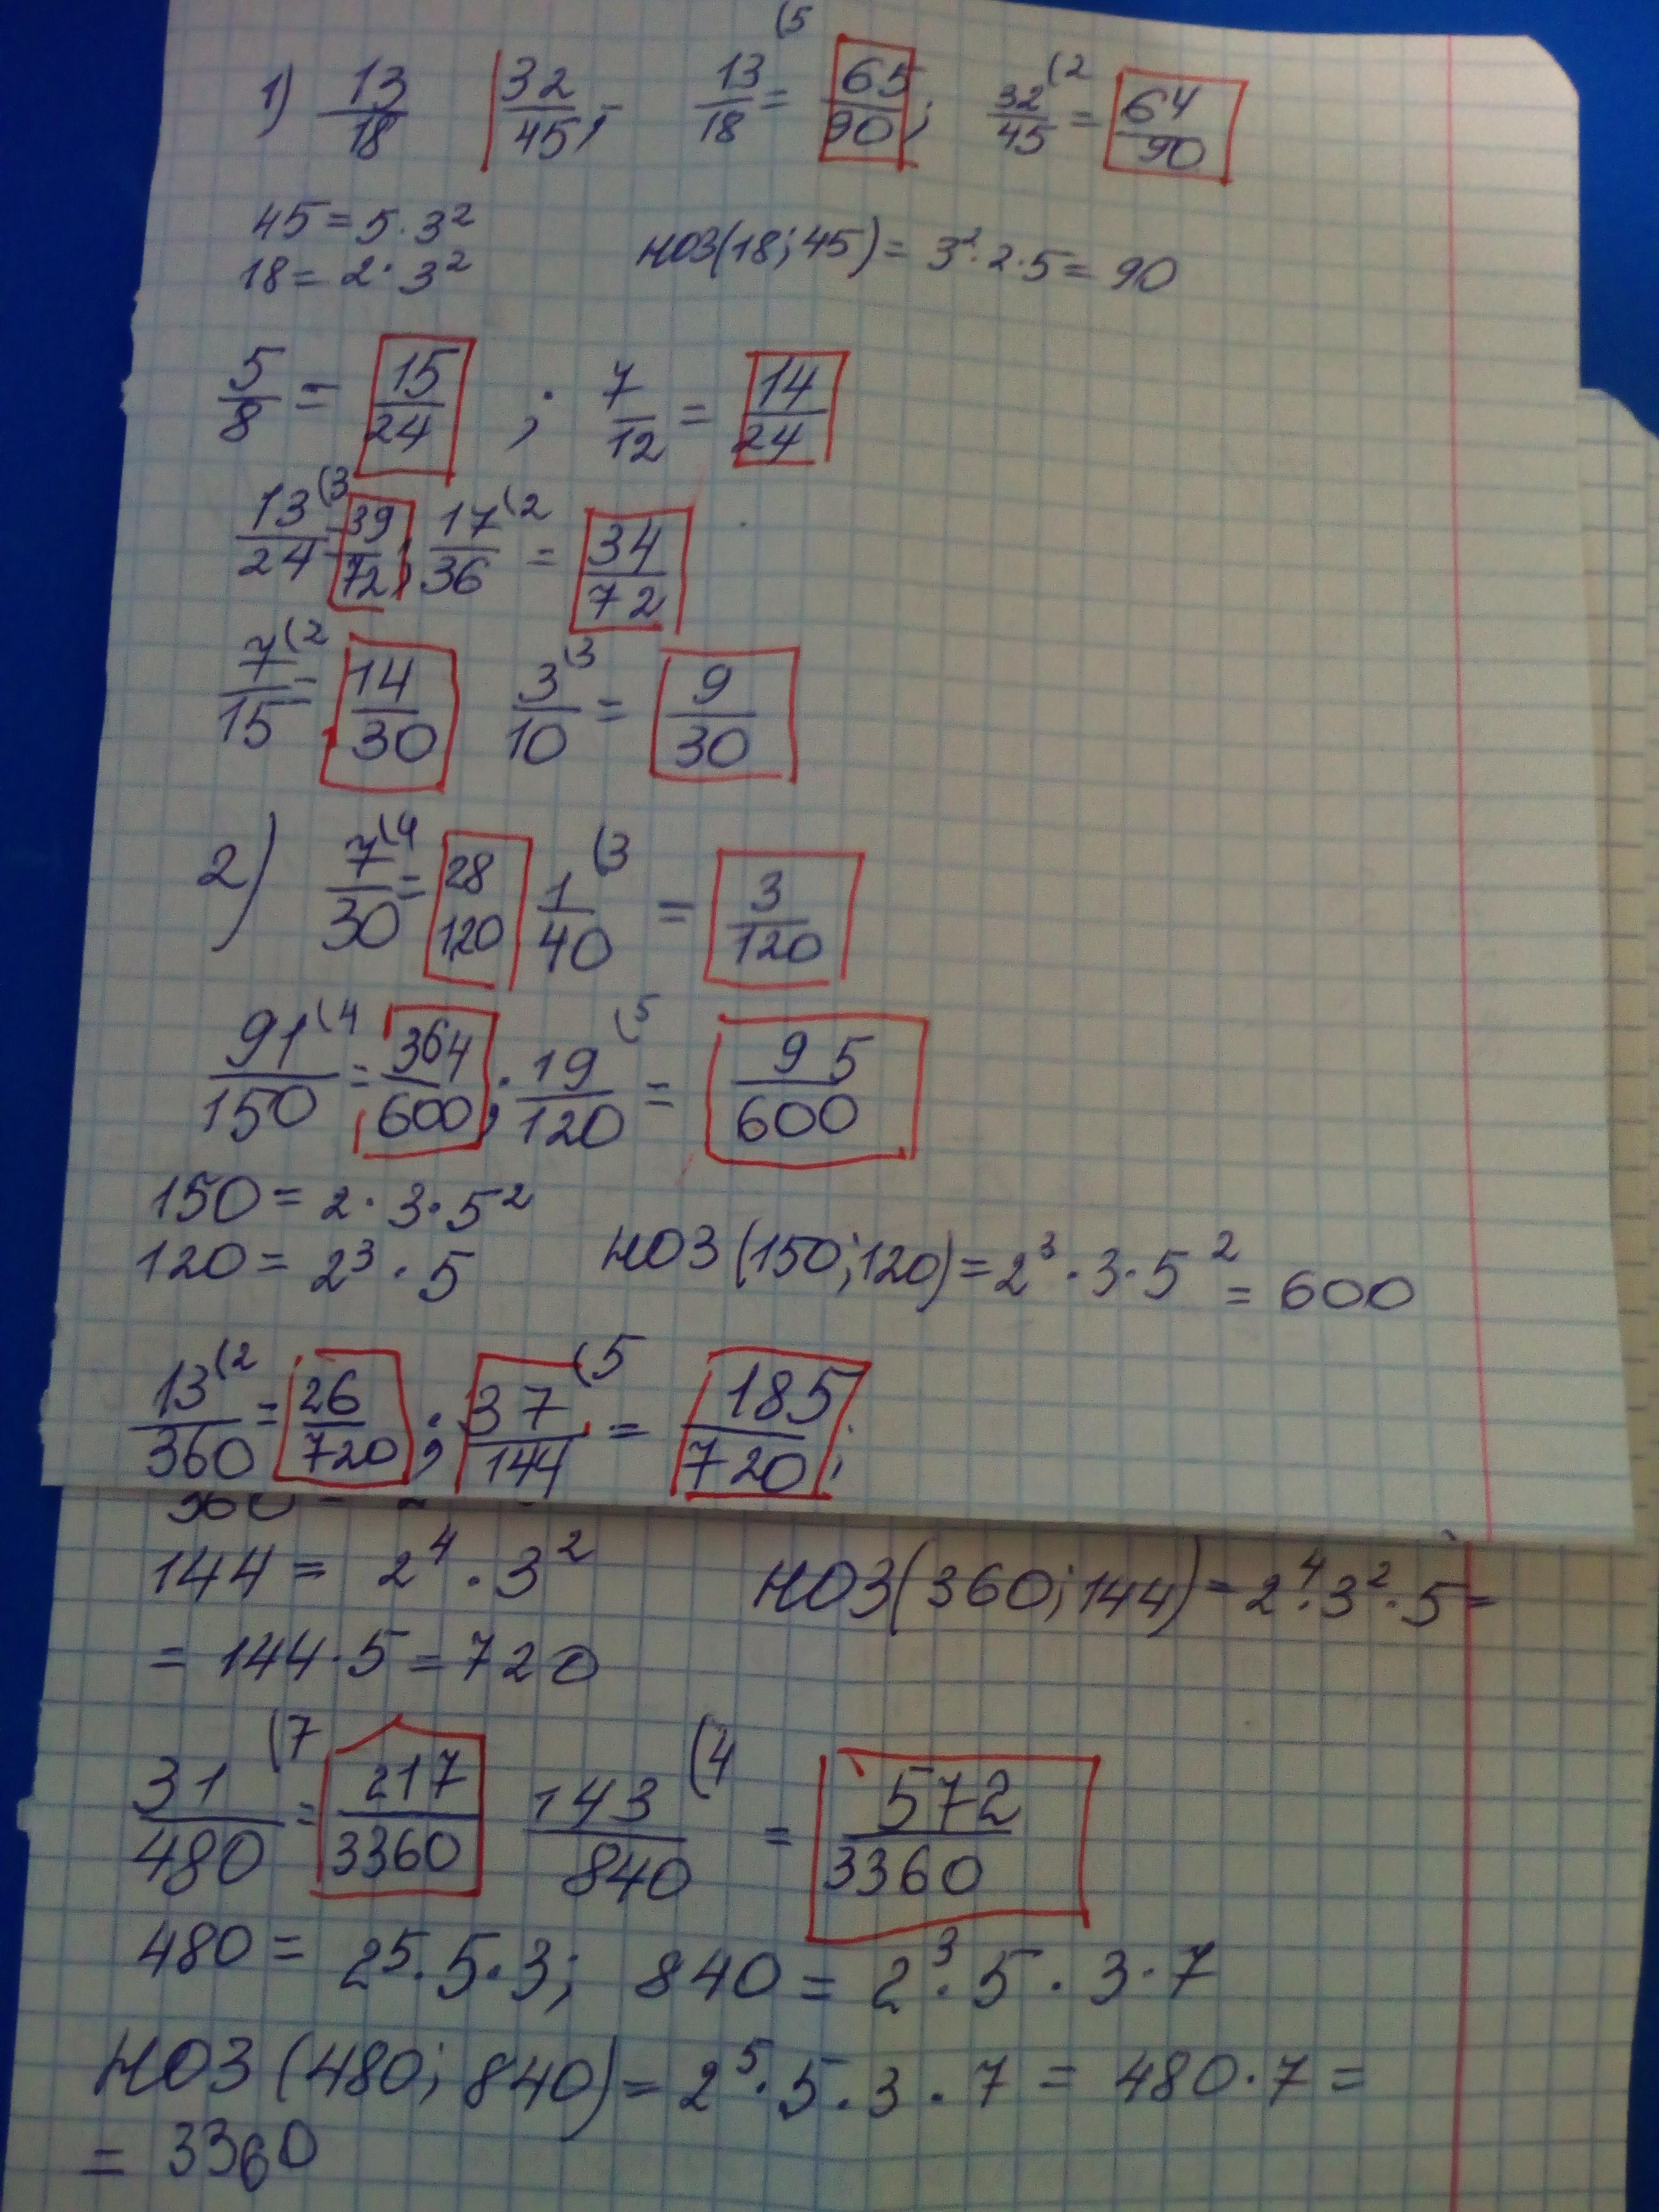 1) 13/18 32/45; 13/18 (5 = 65/90; 32/45 (2 = 64/90
45 = 5 · 3²
18 = 2 · 3² НОЗ(18; 45) = 3² · 2 · 5 = 90
5/8 = 15/24 ; 7/12 = 14/24
13/24 (3 = 39/72; 17/36 (2 = 34/72
7/15 (2 = 14/30 3/10 (3 = 9/30
2) 7/30 (4 = 28/120 1/40 (3 = 3/120
91/150 (4 = 364/600; 19/120 (5 = 95/600
150 = 2 · 3 · 5²
120 = 2³ · 5 НОЗ(150; 120) = 2³ · 3 · 5² = 600
13/360 (2 = 26/720; 37/144 (5 = 185/720;
144 = 2⁴ · 3² НОЗ(360; 144) = 2⁴ · 3² · 5 =
= 144 · 5 = 720
31/480 (7 = 217/3360 143/840 (4 = 572/3360
480 = 2⁵ · 5 · 3; 840 = 2³ · 5 · 3 · 7
НОЗ(480; 840) = 2⁵ · 5 · 3 · 7 = 480 · 7 =
= 3360